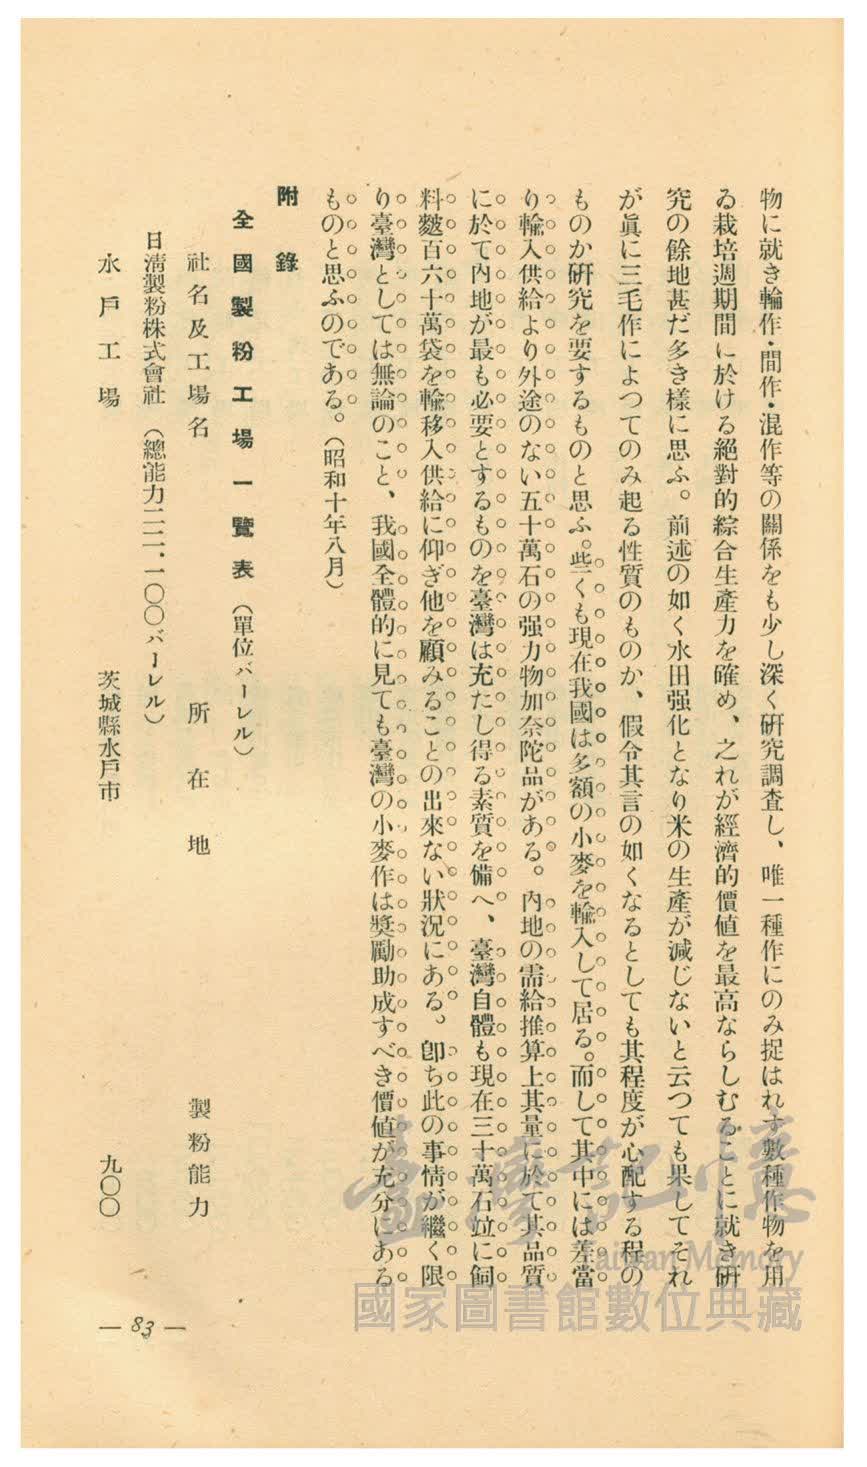 物に就き輪作・間作・混作等の關係をも少し深く硏究調査し、唯一種作にのみ捉はれす數種作物を用
ゐ栽培週期間に於ける絕對的綜合生產力を確め、之れが經濟的價値を最高ならしむることに就き硏
究の餘地甚だ多き樣に思ふ。前述の如く水田强化となり米の生產が減じないと云つても果してそれ
が眞に三毛作によつてのみ起る性質のものか、假令其言の如くなるとしても其程度が心配する程の
ものか硏究を要するものと思ふ。些くも現在我國は多額の小麥を輸入して居る。而して其中には差當
り輸入供給より外途のない五十萬石の强力物加奈陀品がある。內地の需給推算上其量に於て其品質
に於て內地が最も必要とするものを臺灣は充たし得る素質を備へ、臺灣自體も現在三十萬石竝に飼
料麬百六十萬袋を輸移入供給に仰ぎ他を顧みることの出來ない狀況にある。卽ち此の事情が繼く限
り臺灣としては無論のこと、我國全體的に見ても臺灣の小麥作は奬勵助成すべき價値が充分にある
ものと思ふのである。（昭和十年八月）
附錄
全國製粉工場一覽表（單位バーレル）
社名及工場名 所在地 製粉能力
日淸製粉株式會社（總能力二二、一〇〇バーレル）
水戶工場 茨城縣水戶市 九〇〇
— 83 —
臺灣記憶
Taiwan Memory
國家圖書館數位典藏